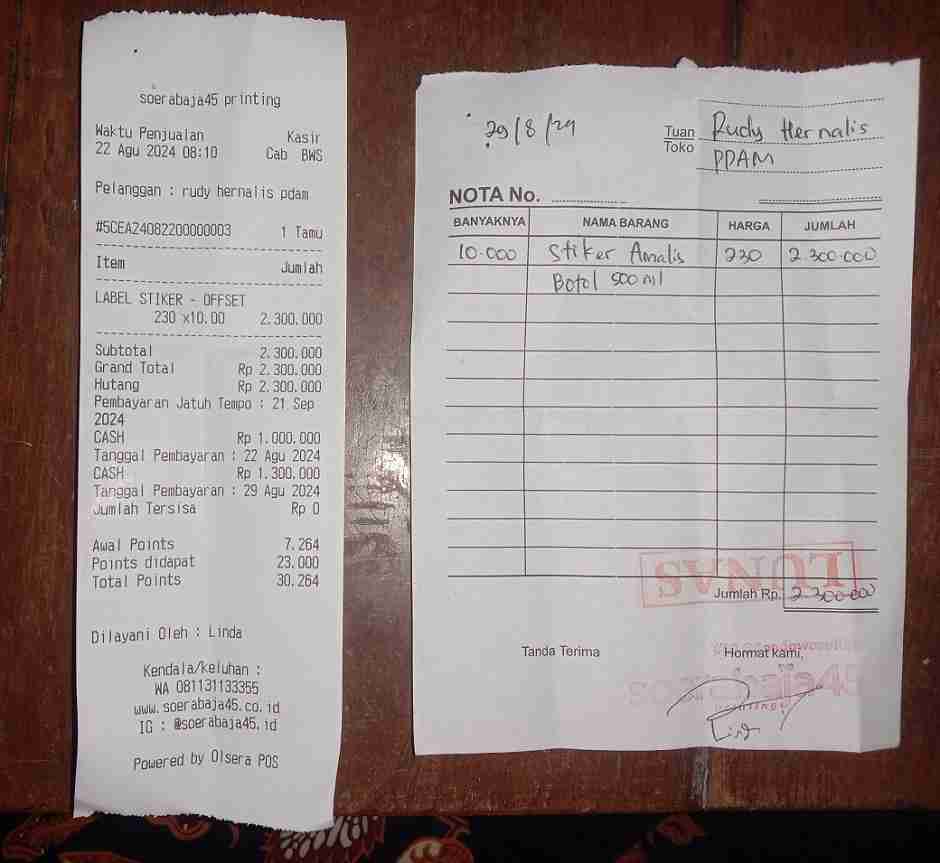 soerabaja45 printing
Waktu Penjualan Kasir
22 Agu 2024 08:10 Cab BWS
Pelanggan : rudy hernalis pdam
#5CEA24082200000003 1 Tamu
Item Jumlah
LABEL STIKER - OFFSET
230 x10.00 2.300.000
Subtotal 2.300.000
Grand Total Rp 2.300.000
Hutang Rp 2.300.000
Pembayaran Jatuh Tempo : 21 Sep
2024
CASH Rp 1.000.000
Tanggal Pembayaran : 22 Agu 2024
CASH Rp 1.300.000
Tanggal Pembayaran : 29 Agu 2024
Jumlah Tersisa Rp 0
Awal Points 7.264
Points didapat 23.000
Total Points 30.264
Dilayani Oleh : Linda
Kendala/keluhan :
WA 081131133355
www.soerabaja45.co.id
IG : @soerabaja45.id
Powered by Olsera POS
29/8/24
Tuan Rudy Hernalis
Toko PDAM
NOTA No.
BANYAKNYA NAMA BARANG HARGA JUMLAH
10.000 Stiker Amalis 230 2.300.000
Botol 500 ml
LUNAS
Jumlah Rp. 2.300.000
Tanda Terima Hormat kami,